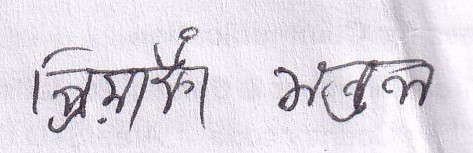 প্রিয়াংকা মন্ডল